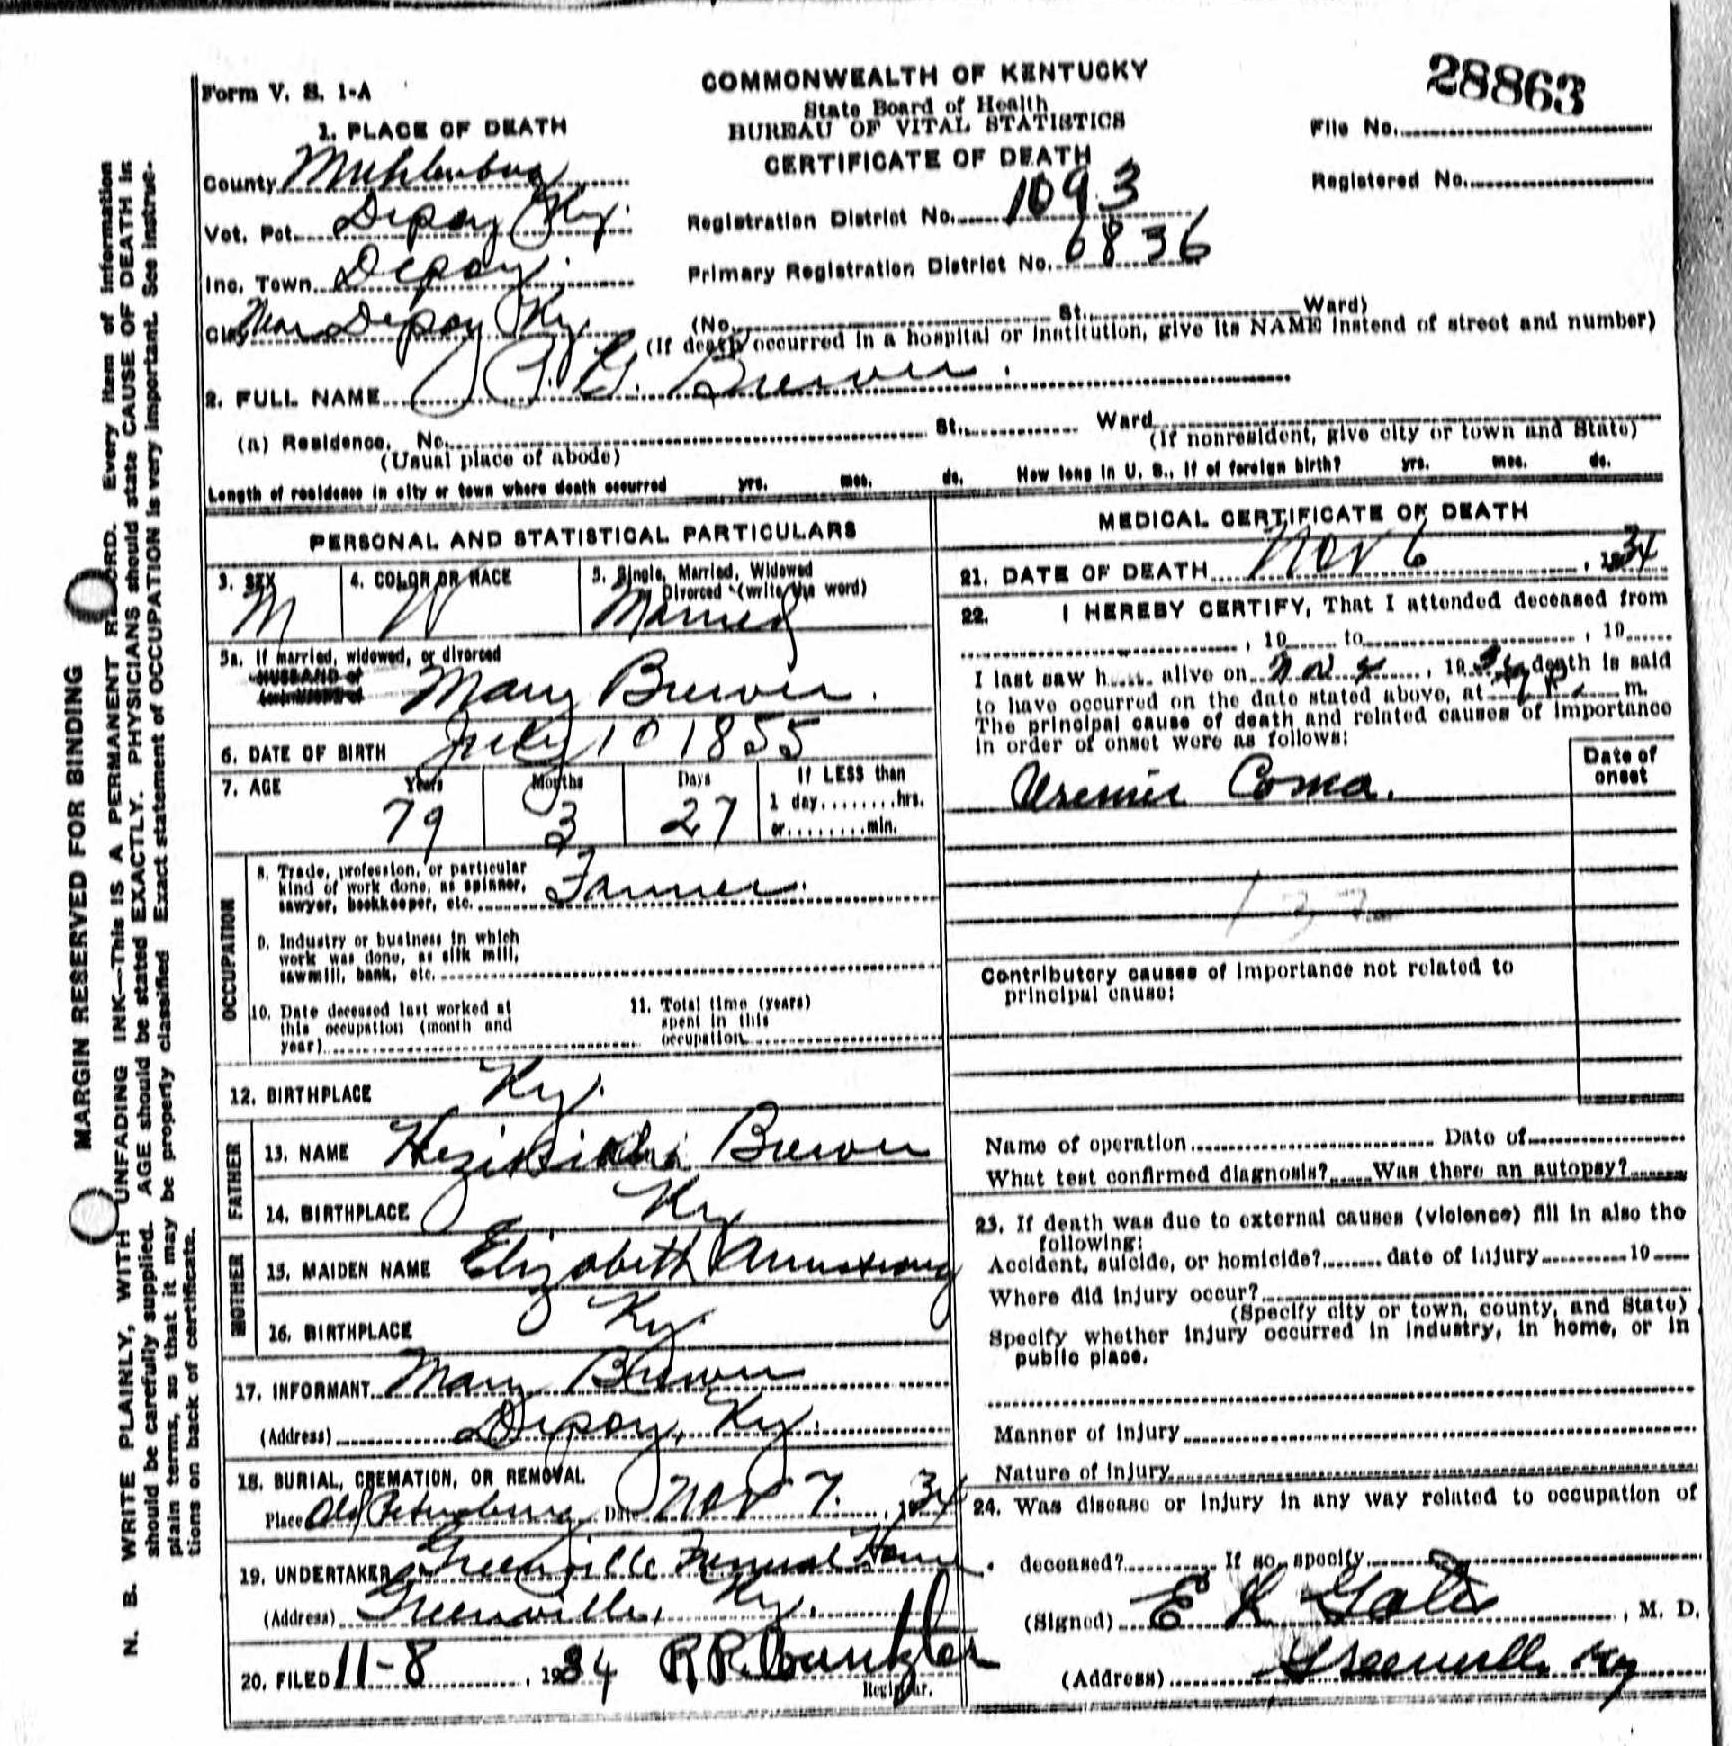 Form V. S. 1-A
COMMONWEALTH OF KENTUCKY
State Board of Health
BUREAU OF VITAL STATISTICS
CERTIFICATE OF DEATH
28863
File No.
Registered No.
1. PLACE OF DEATH
County Muhlenburg
Vot. Pct. Depoy Ky.
Inc. Town Depoy.
City Near Depoy Ky.
Registration District No. 1093
Primary Registration District No. 6836
(No. St. Ward)
(If death occurred in a hospital or institution, give its NAME instead of street and number)
2. FULL NAME G. Brewer.
(a) Residence. No. St. Ward
(Usual place of abode) (If nonresident, give city or town and State)
Length of residence in city or town where death occurred yrs. mos. ds. How long in U. S., if of foreign birth? yrs. mos. ds.
PERSONAL AND STATISTICAL PARTICULARS
3. SEX M
4. COLOR OR RACE W
5. Single, Married, Widowed or Divorced (write the word) Married
5a. If married, widowed, or divorced
HUSBAND of
Mary Brewer.
6. DATE OF BIRTH July 10 1855
7. AGE Years Months Days If LESS than
1 day........hrs.
or........min.
79 3 27
OCCUPATION
8. Trade, profession, or particular
kind of work done, as spinner,
sawyer, bookkeeper, etc. Farmer.
9. Industry or business in which
work was done, as silk mill,
sawmill, bank, etc.
10. Date deceased last worked at
this occupation (month and
year)
11. Total time (years)
spent in this
occupation
12. BIRTHPLACE Ky.
FATHER
13. NAME Brewer
14. BIRTHPLACE Ky
MOTHER
15. MAIDEN NAME Elizabeth Armstrong
16. BIRTHPLACE Ky.
17. INFORMANT Mary Brewer
(Address) Depoy, Ky.
18. BURIAL, CREMATION, OR REMOVAL
Place Old Petersburg Date Nov 7. , 1934
19. UNDERTAKER Greenville Funeral Home
(Address) Greenville, Ky.
20. FILED 11-8 , 1934 R R
Registrar.
MEDICAL CERTIFICATE OF DEATH
21. DATE OF DEATH Nov 6 , 1934
22. I HEREBY CERTIFY, That I attended deceased from
, 19 to , 19
I last saw h alive on Nov 4 , 1934, death is said
to have occurred on the date stated above, at m.
The principal cause of death and related causes of importance
in order of onset were as follows:
Date of
onset
Uremic Coma.
132
Contributory causes of importance not related to
principal cause:
Name of operation Date of
What test confirmed diagnosis? Was there an autopsy?
23. If death was due to external causes (violence) fill in also the
following:
Accident, suicide, or homicide? date of injury 19
Where did injury occur?
(Specify city or town, county, and State)
Specify whether injury occurred in industry, in home, or in
public place.
Manner of injury
Nature of injury
24. Was disease or injury in any way related to occupation of
deceased? If so, specify
(Signed) E K , M. D.
(Address) Greenville Ky
MARGIN RESERVED FOR BINDING
N. B. WRITE PLAINLY, WITH UNFADING INK—This IS A PERMANENT RECORD. Every item of information
should be carefully supplied. AGE should be stated EXACTLY. PHYSICIANS should state CAUSE OF DEATH in
plain terms, so that it may be properly classified Exact statement of OCCUPATION is very important. See instruc-
tions on back of certificate.